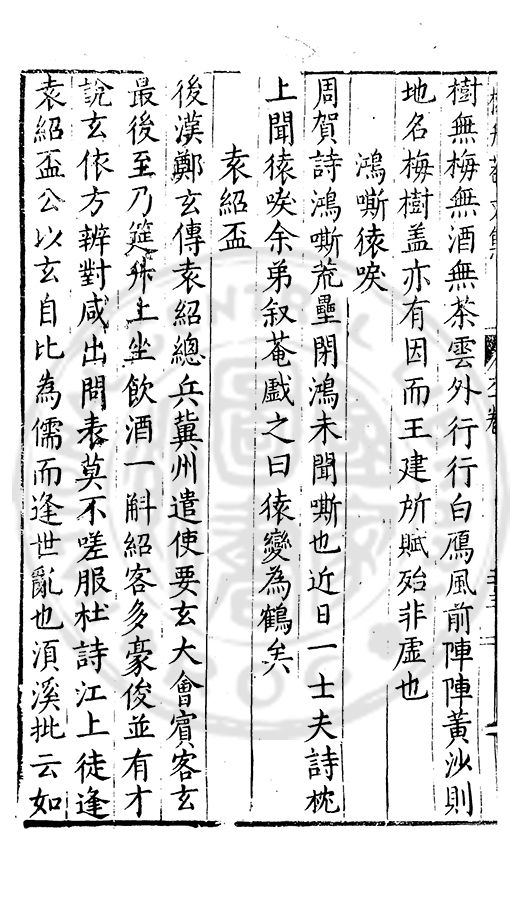 樹無梅無酒無茶雲外行行白鴈風前陣陣黃沙則
地名梅樹盖亦有因而王建所賦殆非虛也
鴻嘶猿唳
周賀詩鴻嘶荒壘閉鴻未聞嘶也近日一士夫詩枕
上聞猿唳余弟叙菴戲之曰猿變為鶴矣
袁紹盃
後漢鄭玄傳袁紹總兵冀州遣使要玄大會賓客玄
最後至乃筵升上坐飲酒一斛紹客多豪俊並有才
說玄依方辨對咸出問表莫不嗟服杜詩江上徒逢
袁紹盃公以玄自比為儒而逢世亂也湏溪批云如